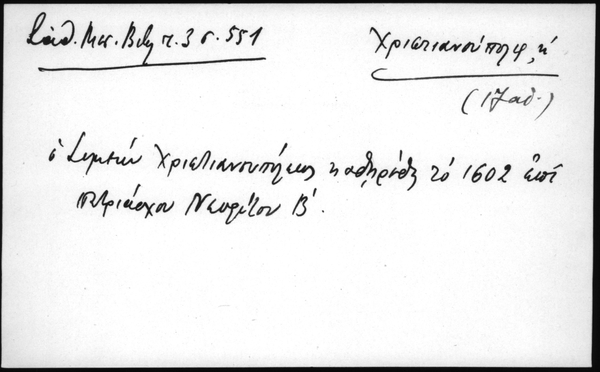 Σάθ. Μεσ. Βιβ τ. 3 σ. 551
Χριστιανούπολις, ἡ
(17 αἰ.)
ὁ Χριστιανουπόλεως καθῃρέθη τὸ 1602 ἐπὶ
πατριάρχου Νεοφύτου Β'.